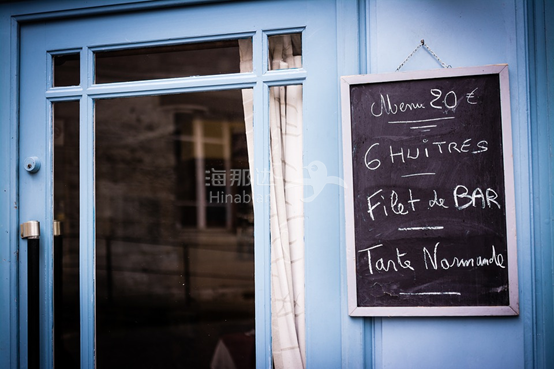 Menu 20 €
6 HUITRES
Filet de BAR
Tarte Normande
海那边
Hinabian